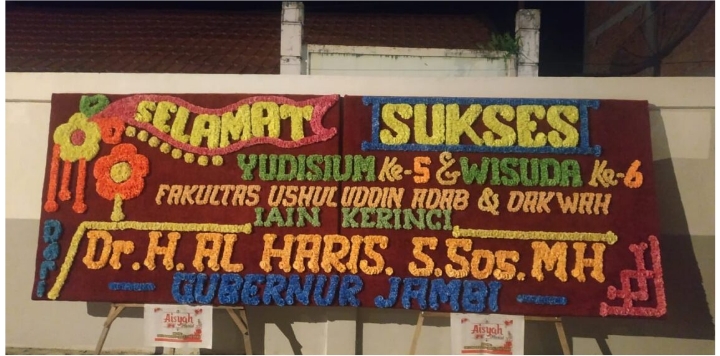 SELAMAT SUKSES
YUDISIUM Ke-5 & WISUDA Ke-6
FAKULTAS USHULUDDIN ADAB & DAKWAH
IAIN KERINCI
Dari
Dr. H. AL HARIS. S.Sos. MH
GUBERNUR JAMBI
Aisyah
Aisyah